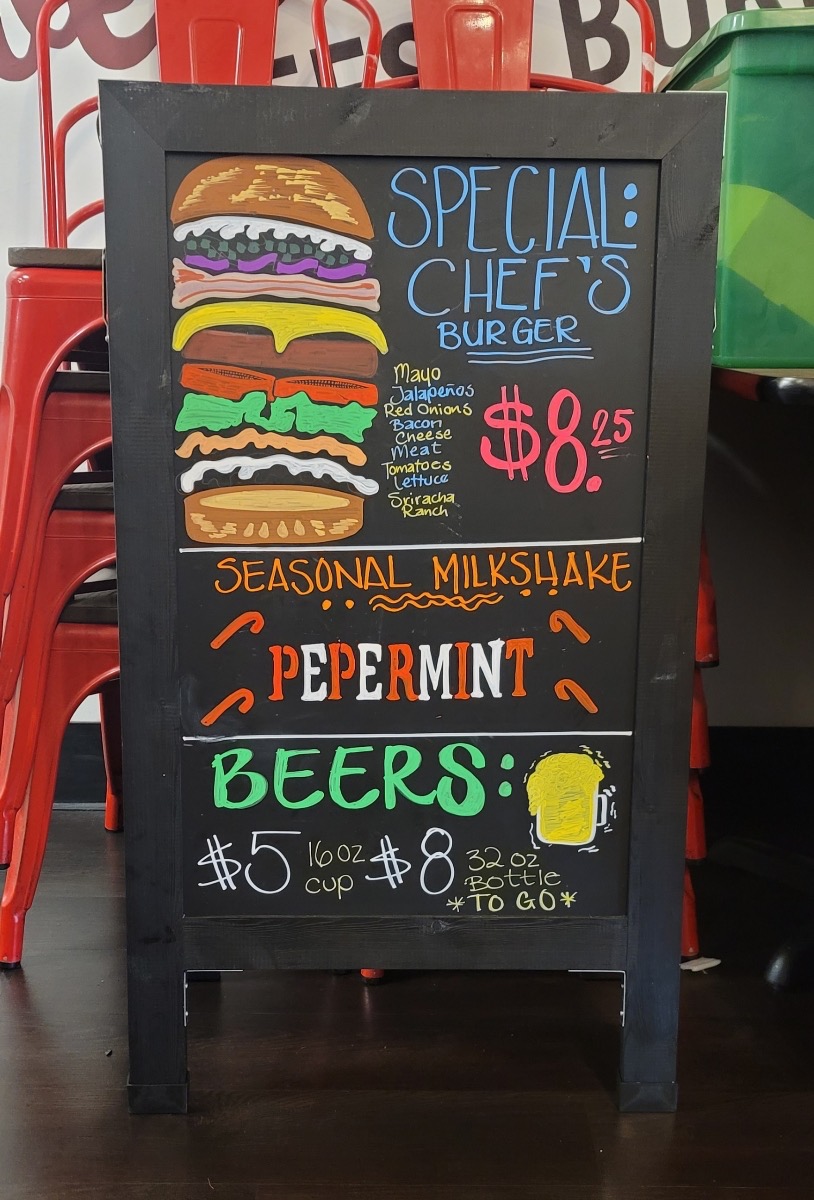 SPECIAL:
CHEF'S
BURGER
Mayo
Jalapeños
Red Onions
Bacon
Cheese
Meat
Tomatoes
Lettuce
Sriracha
Ranch
$8.25
SEASONAL MILKSHAKE
PEPERMINT
BEERS:
$5 16oz cup
$8 32 oz Bottle
*TO GO*